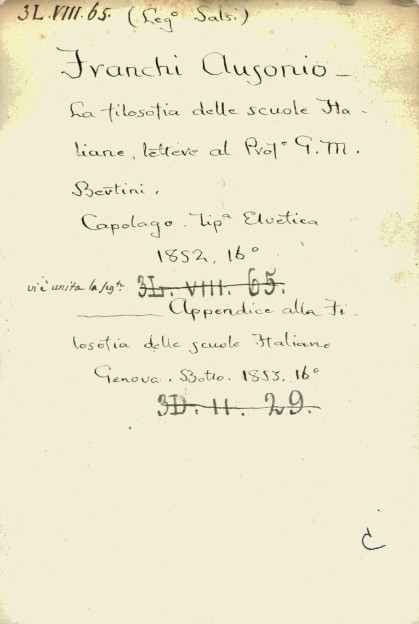 3L.VIII.65. (Legº Salsi.)
Franchi Ausonio –
La filosofia delle scuole Ita-
liane, lettere al Profe G.M.
Bertini.
Capolago. Tipa Elvetica
1852, 16º
vi è unita la segte 3L. VIII. 65.
Appendice alla Fi-
losofia delle scuole Italiane
Genova. Botto. 1853. 16º
3D. 11. 29.
C